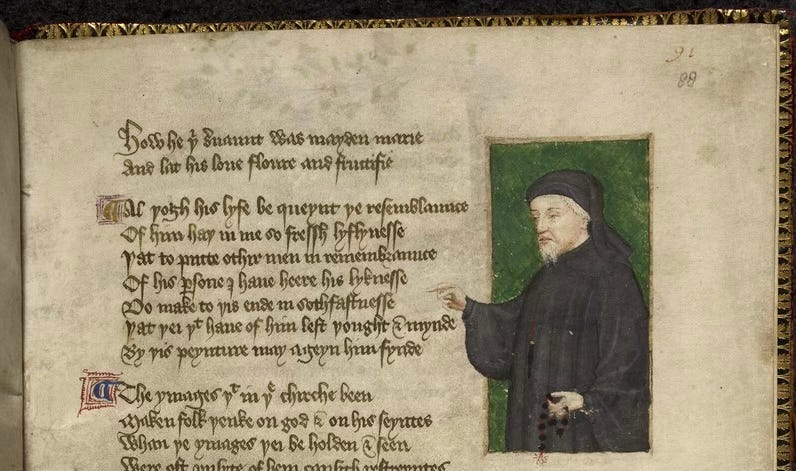 91
88
How he yͬ ẜuaunt was mayden marie
And lat his loue floure and fructifie
Al yogh his lyfe be queynt ye resemblaunce
Of him hay in me so fressh lyflynesse
Yat to putte othir men in remembraunce
Of his ꝑsone I haue heere his lyknesse
Do make to yis ende in sothfastnesse
Yat yei yͭ haue of him left yought & mynde
By yis peynture may ageyn him fynde
The ymages yͭ in yͤ chirche been
Maken folk yenke on god & on his seyntes
Whan ye ymages yei be holden & seen
Were oft vnsyte of hem causith restreyntes